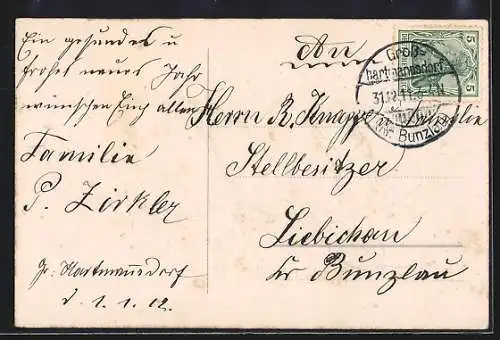 Ein gesundes u
frohes neues Jahr
wünschen Euch allen
Familie
P. Zirkler
Gr. Hartmannsdorf
d. 1.1.12.
An
Herrn R. Knappe Familie
Stellbesitzer
Liebichau
Kr Bunzlau
Groß-
hartmannsdorf
31.12.11
Bunzlau
5
5